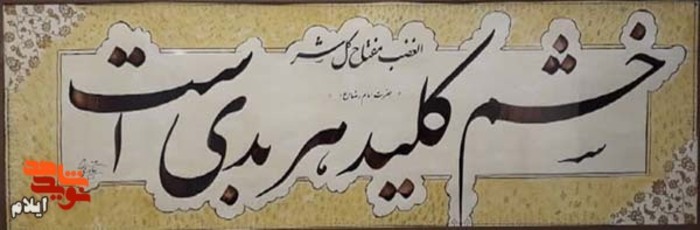 الغضب مفتاح کل شر
حضرت امام رضا(ع)
خشم کلید هر بدی است
نوید شاهد
ایلام